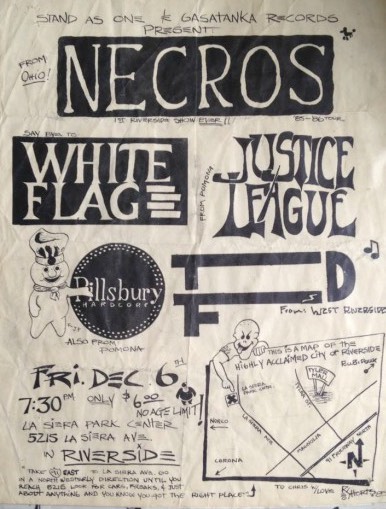 STAND AS ONE & GASATANKA RECORDS
PRESENT
FROM
OHIO!
NECROS
1ST RIVERSIDE SHOW EVER!!
'85-'86 TOUR
SAY ADIOS TO
WHITE
FLAG
FROM POMONA
JUSTICE
LEAGUE
Pillsbury
HARDCORE
ALSO FROM
POMONA
FROM WEST RIVERSIDE
FRI. DEC. 6TH
7:30 PM ONLY $6.00
NO AGE LIMIT!
LA SIERA PARK CENTER
5215 LA SIERA AVE.
IN RIVERSIDE
"TAKE 91 EAST TO LA SIERA AVE. GO
IN A NORTH WESTERLY DIRECTION UNTIL YOU
REACH 5215. LOOK FOR CARS, FREAKS, & JUST
ABOUT ANYTHING AND YOU KNOW YOU GOT THE RIGHT PLACE!
THIS IS A MAP OF THE
HIGHLY ACCLAIMED CITY OF RIVERSIDE
LA SIERA
PARK CNTR
TYLER
MALL
TYLER ST.
NORCO
LA SIERRA AVE
MAGNOLIA
91 FREEWAY
CORONA
N
TO CHRIS W/LOVE